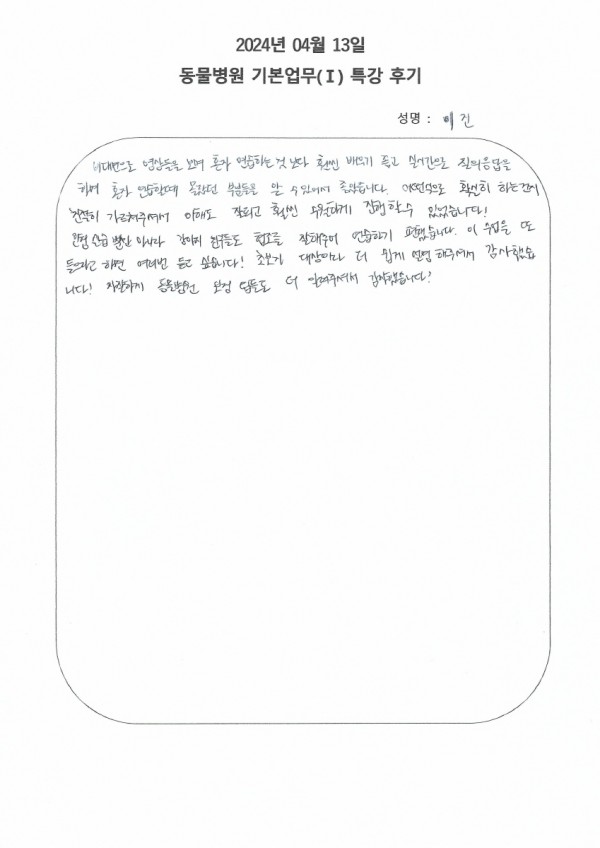 2024년 04월 13일
동물병원 기본업무(I) 특강 후기
성명 : 이진
비대면으로 영상들을 보며 혼자 연습하는 것 보다 훨씬 배우기 좋고 실시간으로 질의응답을
하여 혼자 연습할때 몰랐던 부분들을 알 수 있어서 좋았습니다. 어떤식으로 확실히 하는건지
정확히 가르쳐주셔서 이해도 잘되고 훨씬 수월하게 진행할 수 있었습니다!
실습 뿐만 아니라 강아지 친구들도 협조를 잘해주어 연습하기 편했습니다. 이 수업을 또
들으라고 하면 여러번 듣고 싶습니다! 초보자 대상이라 더 쉽게 설명 해주셔서 감사했습
니다! 자잘하게 동물병원 보정 팁들도 더 알려주셔서 감사했습니다!